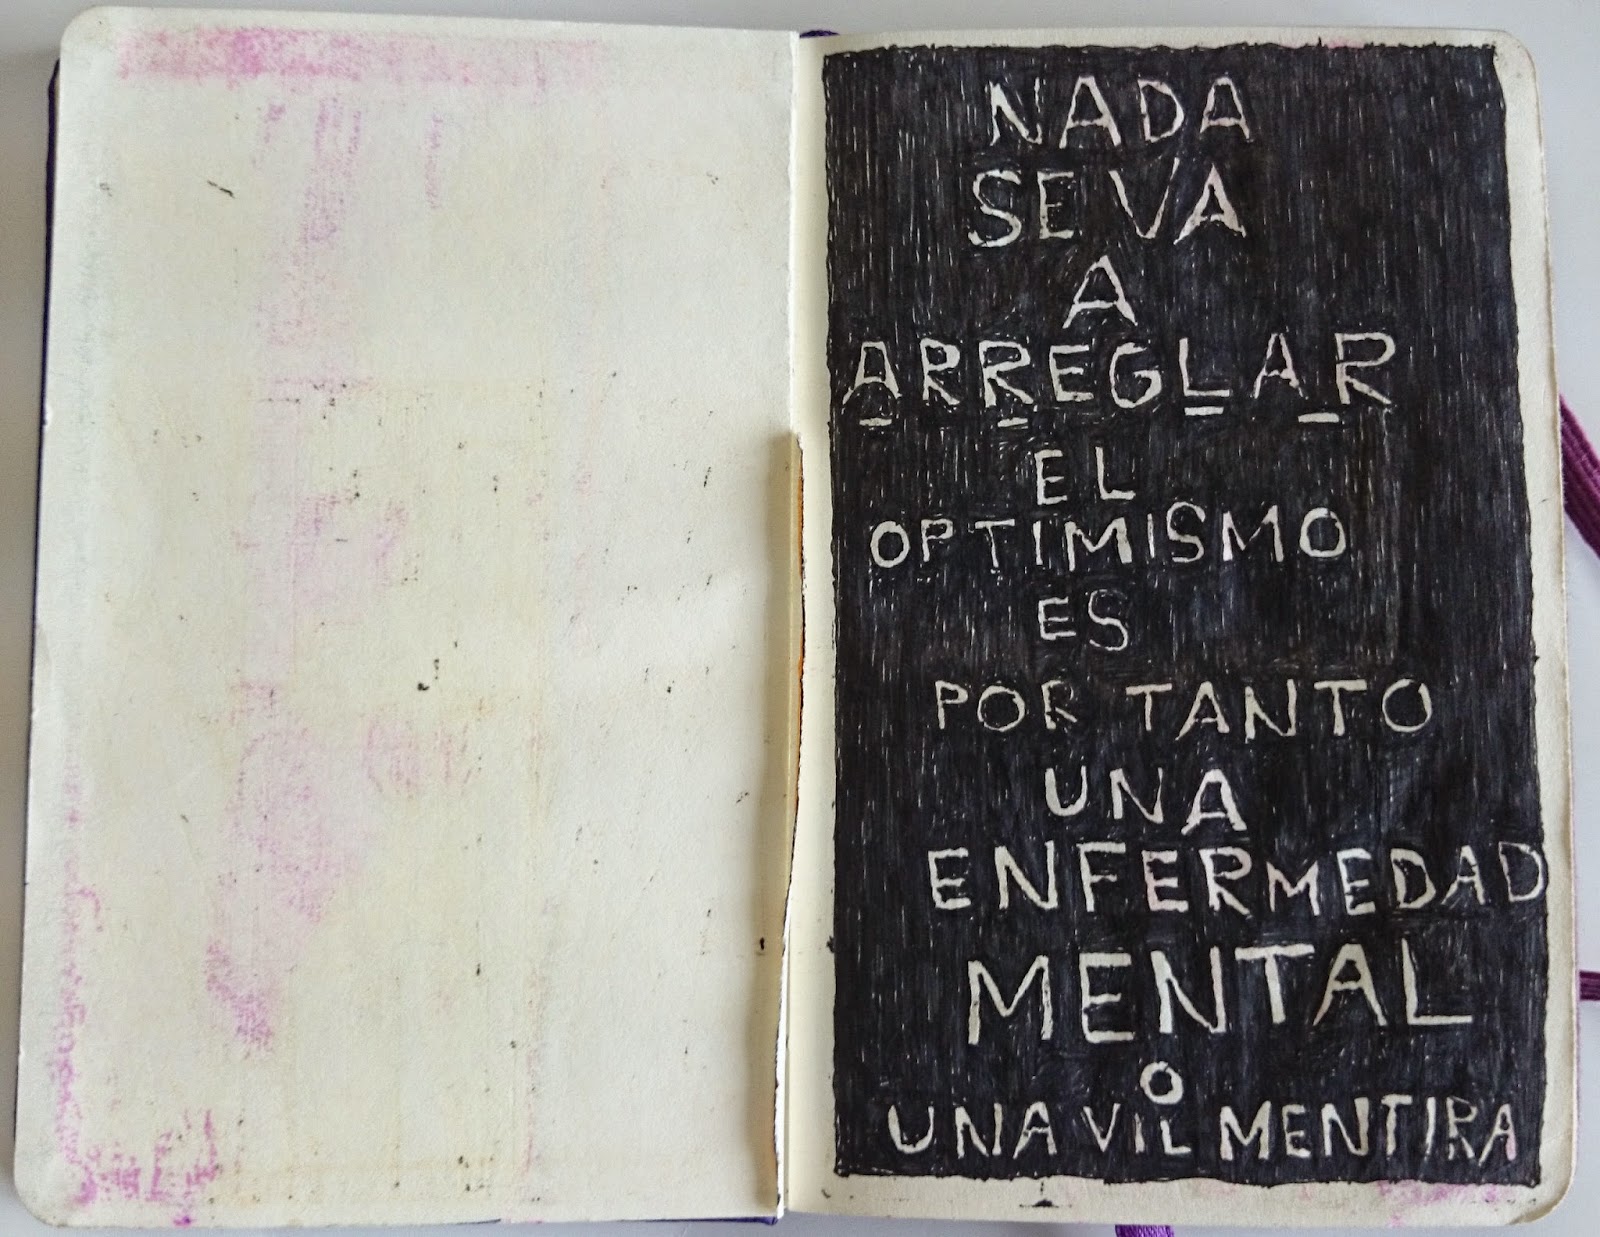 NADA
SE VA
A
ARREGLAR
EL
OPTIMISMO
ES
POR TANTO
UNA
ENFERMEDAD
MENTAL
O
UNA VIL MENTIRA